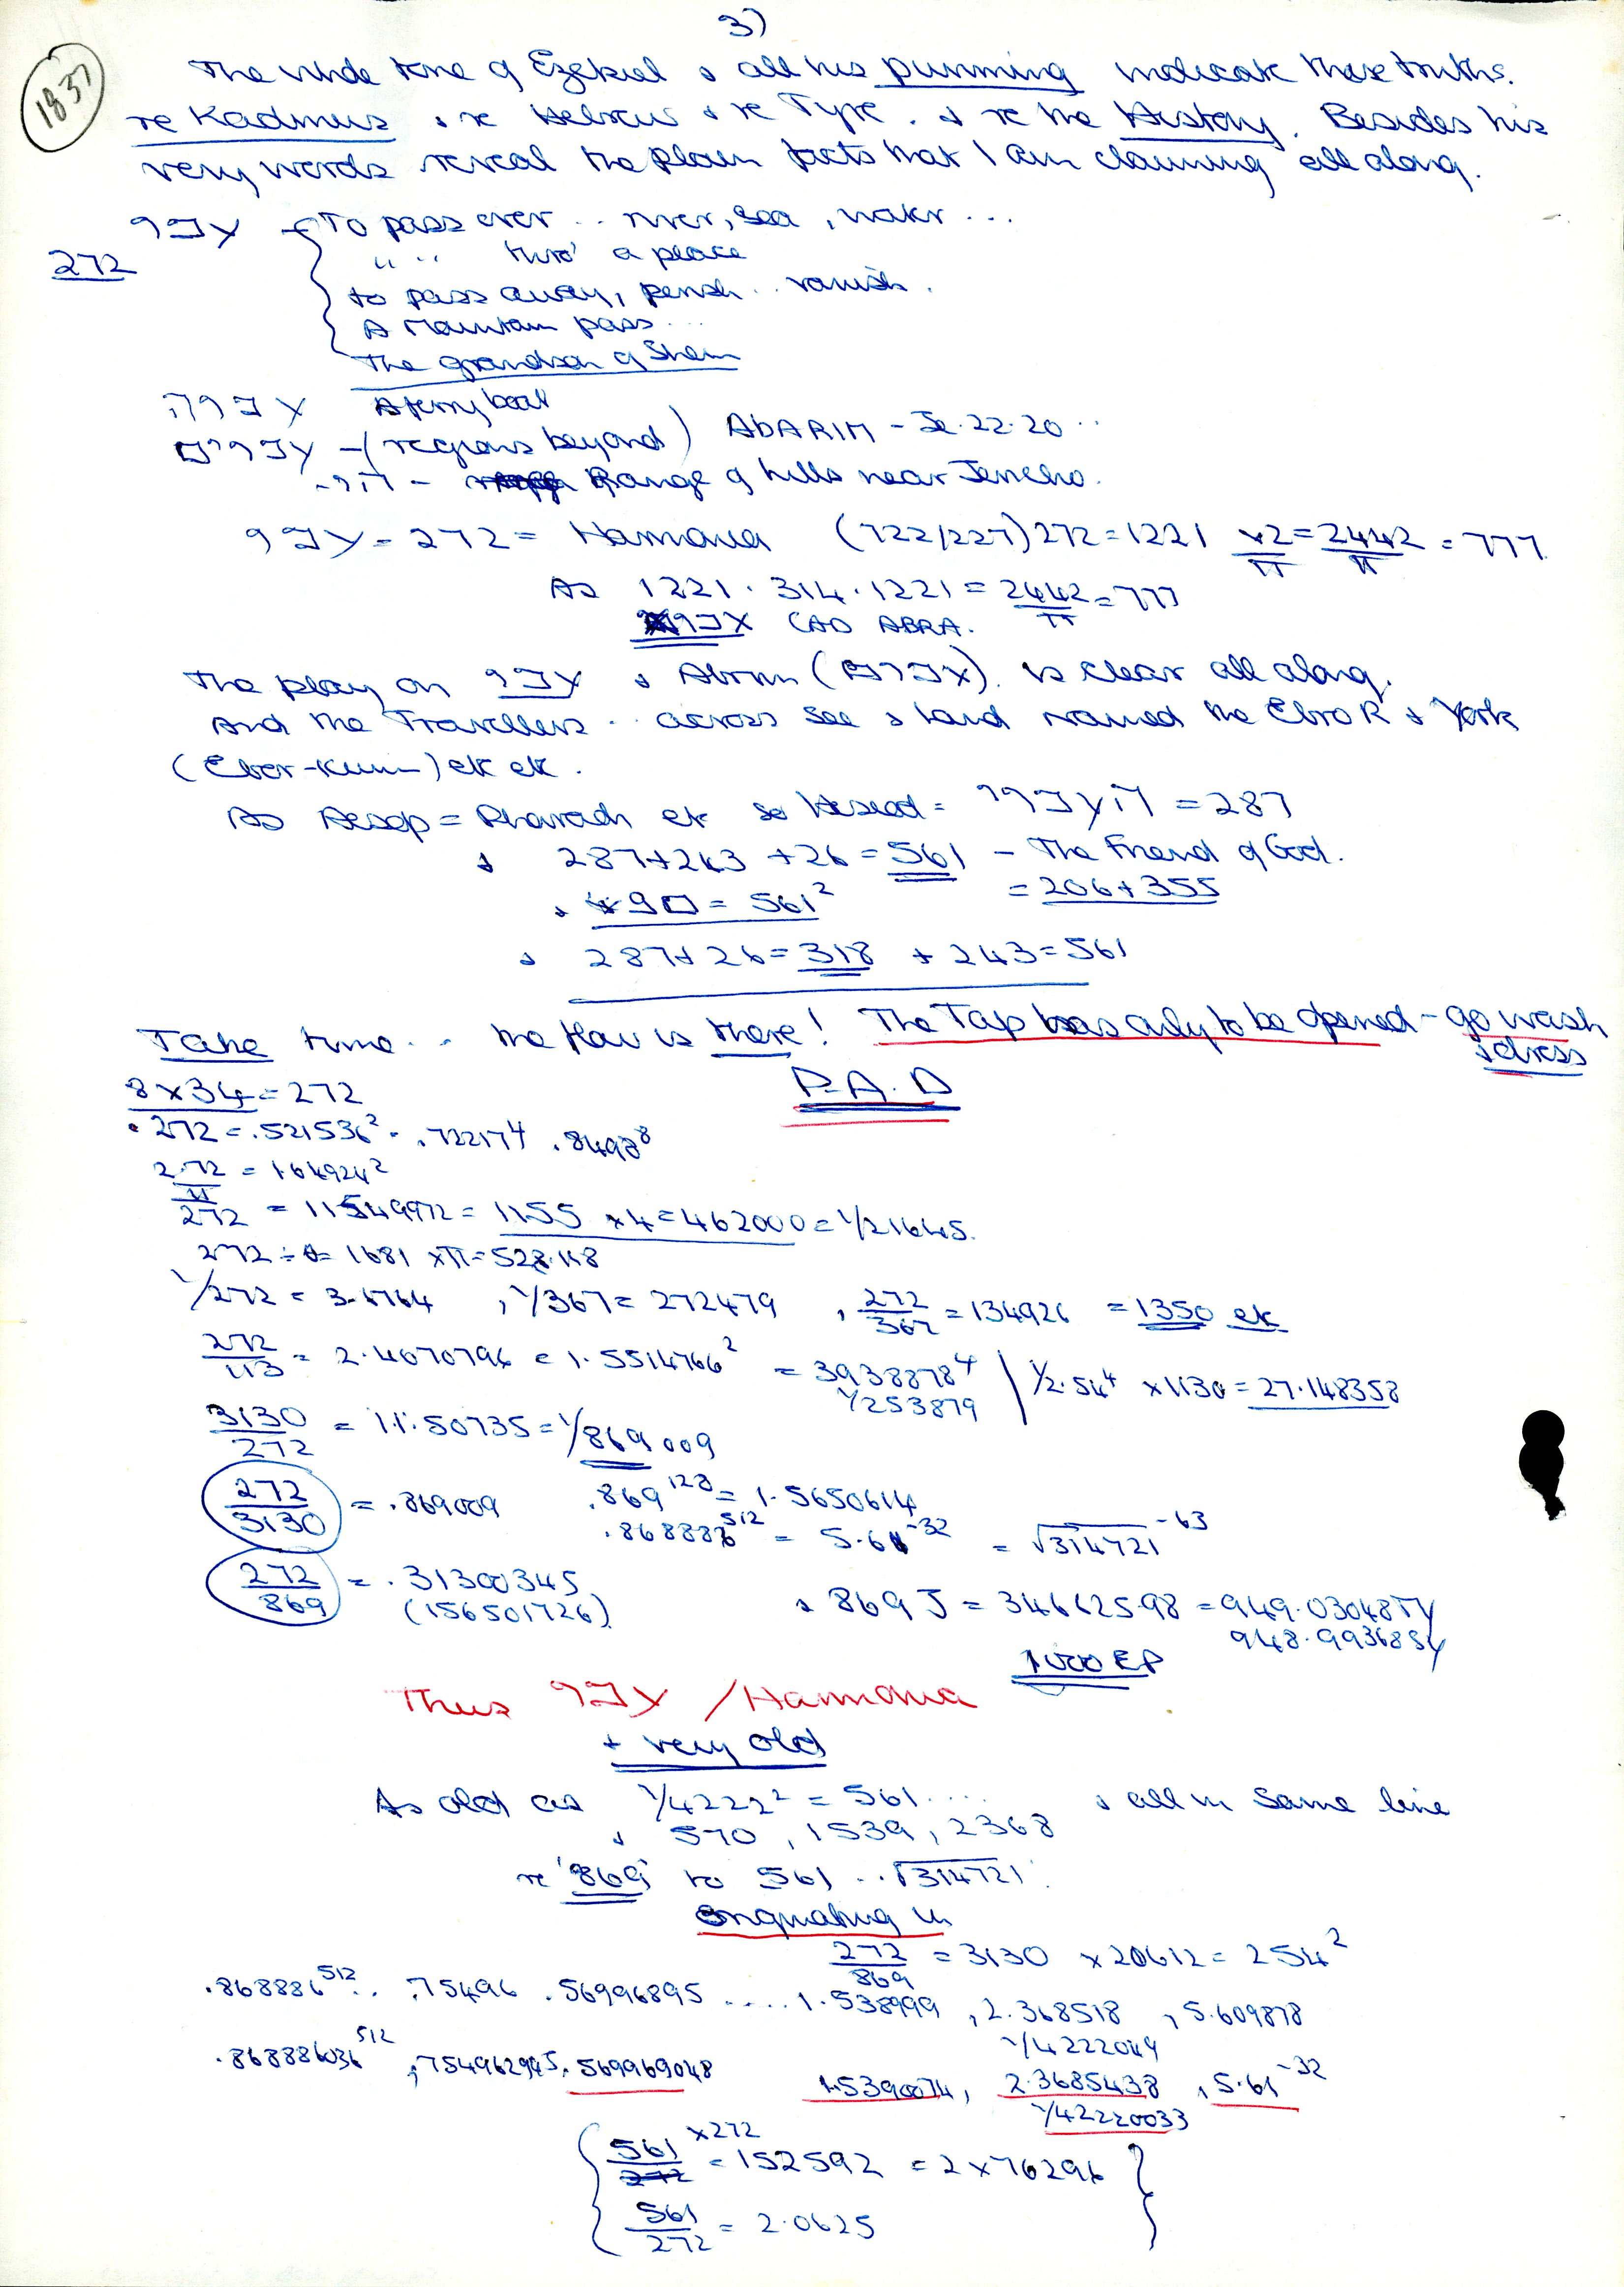 3)
1837
The whole tone of Ezekiel & all his punning indicate these truths.
re Kadmus & re Hebrews & re Tyre. & re the History. Besides his
very words reveal the plain facts that I am claiming all along.
עבר - To pass over .. river, sea, water ...
272
" " thro' a place
to pass away, perish .. vanish.
A Mountain pass ...
The grandson of Shem
A ferry boat
(regions beyond) ABARIM - Je. 22.20 ..
Range of hills near Jericho.
עבר = 272 = Harmonia (722/227) 272 = 1221 x2/π = 2442/π = 777.
As 1221 . 314 . 1221 = 2442/π = 777
CAD ABRA.
The play on עבר & Abram (אברם) is clear all along.
And the Travellers .. across sea & land named the Ebro R & York
(Eber-) etc etc.
As Aesop = Pharaoh etc so Hesiod = = 287
& 287+243 +26 = 561 - The Friend of God.
= 206+355
= 561²
& 287+26 = 318 + 243 = 561
Take time .. the flow is there! The Tap has only to be opened - go wash
& dress
P.A.D
8 x 34 = 272
.272 = .521536² = .72217⁴ .8498⁸
2.72 = 1.64924²
π/272 = 11549972 = 1155 x 4 = 462000 = 1/21645.
1681 x π = 528.118
1/272 = 3.6764 , 1/367 = 272479 , 272/367 = 134926 = 1350 etc
272/113 = 2.4070796 = 1.5514766² = 3938878⁴ | 1/2.54⁴ x 1130 = 27.148358
1/253879
3130/272 = 11.50735 = 1/869009
272/3130 = .869009 .869¹²⁸ = 1.5650614
.868886⁵¹² = 5.61⁻³² = √314721⁻⁶³
272/869 = .31300345
(156501726)
& 869 J = 346625.98 = 949.03048 TY
948.993685Y
1000 EP
Thus עבר / Harmonia
+ very old
As old as 1/4222² = 561 .... & all in same line
& 570 , 1539 , 2368
re '869' to 561 .. √314721
272/869 = 3130 x 20612 = 254²
.868886⁵¹² .. .75496 .56996895 .... 1.538999 , 2.368518 , 5.609878
1/4222049
.868886036⁵¹² , .754962945 . 569969048 1.5390074 , 2.3685438 , 5.61⁻³²
1/42220033
561 x272 = 152592 = 2 x 76296
561/272 = 2.0625